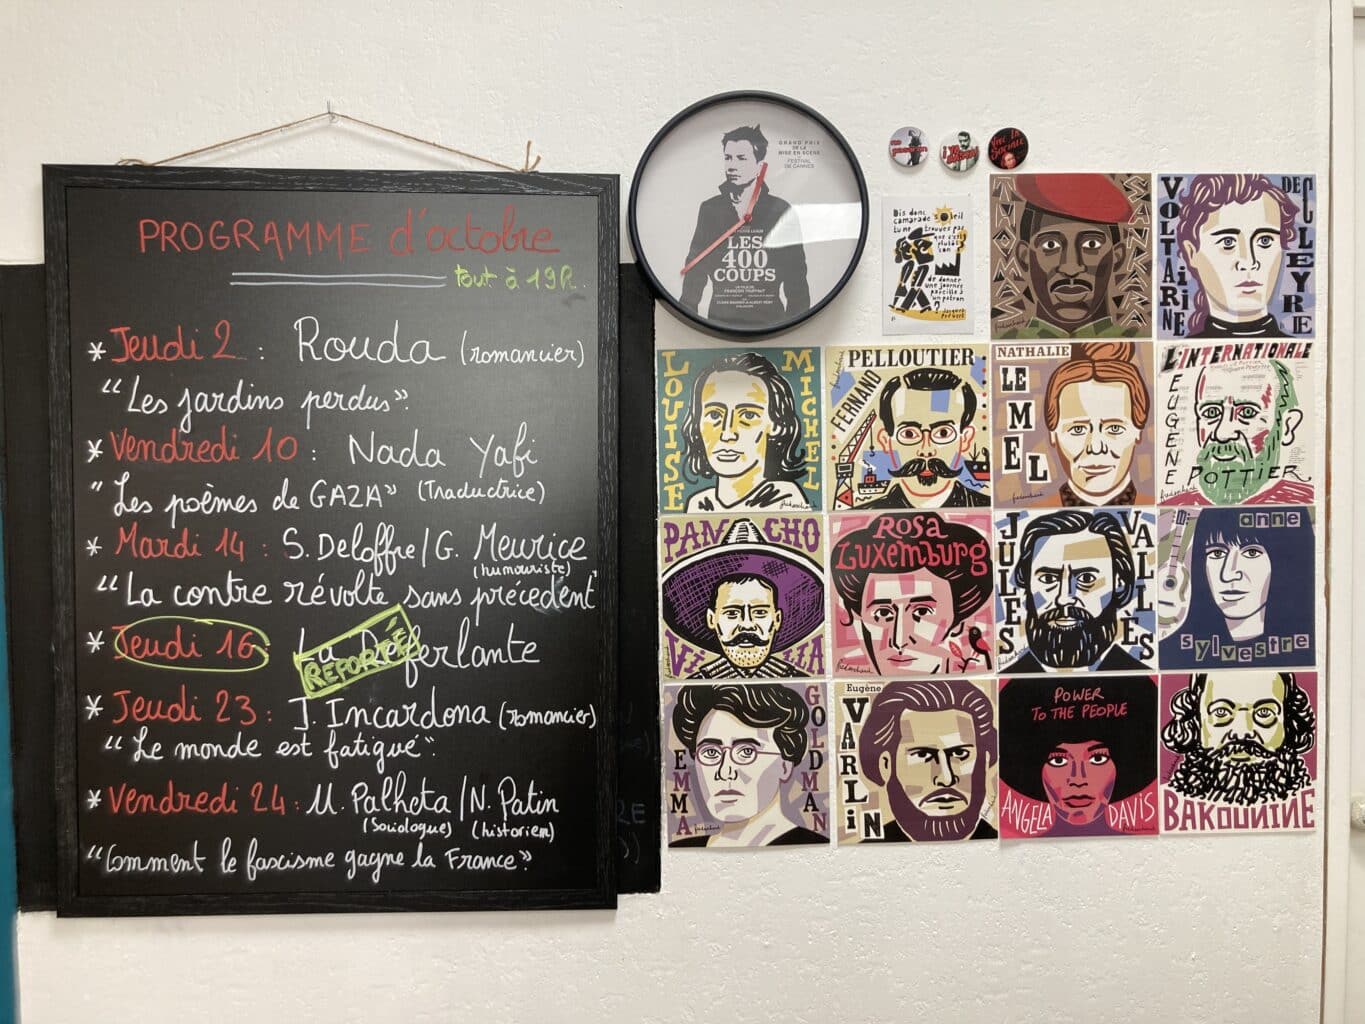 PROGRAMME d'octobre
tout à 19h.
* Jeudi 2 : Rouda (romancier)
"Les jardins perdus".
* Vendredi 10 : Nada Yafi
"Les poèmes de GAZA" (Traductrice)
* Mardi 14 : S. Deloffre / G. Meurice
(humouriste)
"La contre révolte sans précédent"
* Jeudi 16 La Déferlante
REPORTÉ
* Jeudi 23 : J. Incardona (romancier)
"Le monde est fatigué".
* Vendredi 24 : U. Palheta / N. Patin
(Sociologue) (historien)
"Comment le fascisme gagne la France".
GRAND PRIX
DE LA
MISE EN SCÈNE
FESTIVAL
DE CANNES
LES
400
COUPS
UN FILM DE
FRANÇOIS TRUFFAUT
Dis donc
camarade soleil
tu ne trouves pas
que c'est
plutôt
con
de donner
une journée
pareille à
un patron
?
Jacques
Prévert
THOMAS SANKARA
VOLTAIRINE DE CLEYRE
LOUISE MICHEL
FERNAND PELLOUTIER
NATHALIE LE MEL
L'INTERNATIONALE
EUGÈNE POTTIER
PANCHO VILLA
ROSA Luxemburg
JULES VALLÈS
anne sylvestre
EMMA GOLDMAN
Eugène VARLIN
POWER
TO THE PEOPLE
ANGELA DAVIS
BAKOUNINE